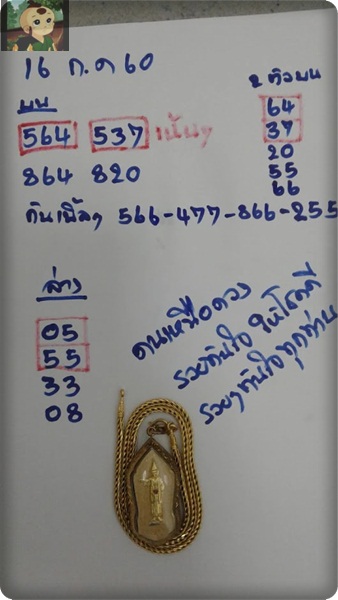 16 ก.ค 60
บน
564 537 เน้นๆ
864 820
กันเบิ้ลๆ 566-477-866-255
2 ตัวบน
64
37
20
55
66
ล่าง
05
55
33
08
คนเหนือดวง
รวยทันใจ ให้โชคดี
รวยๆทันใจทุกท่าน